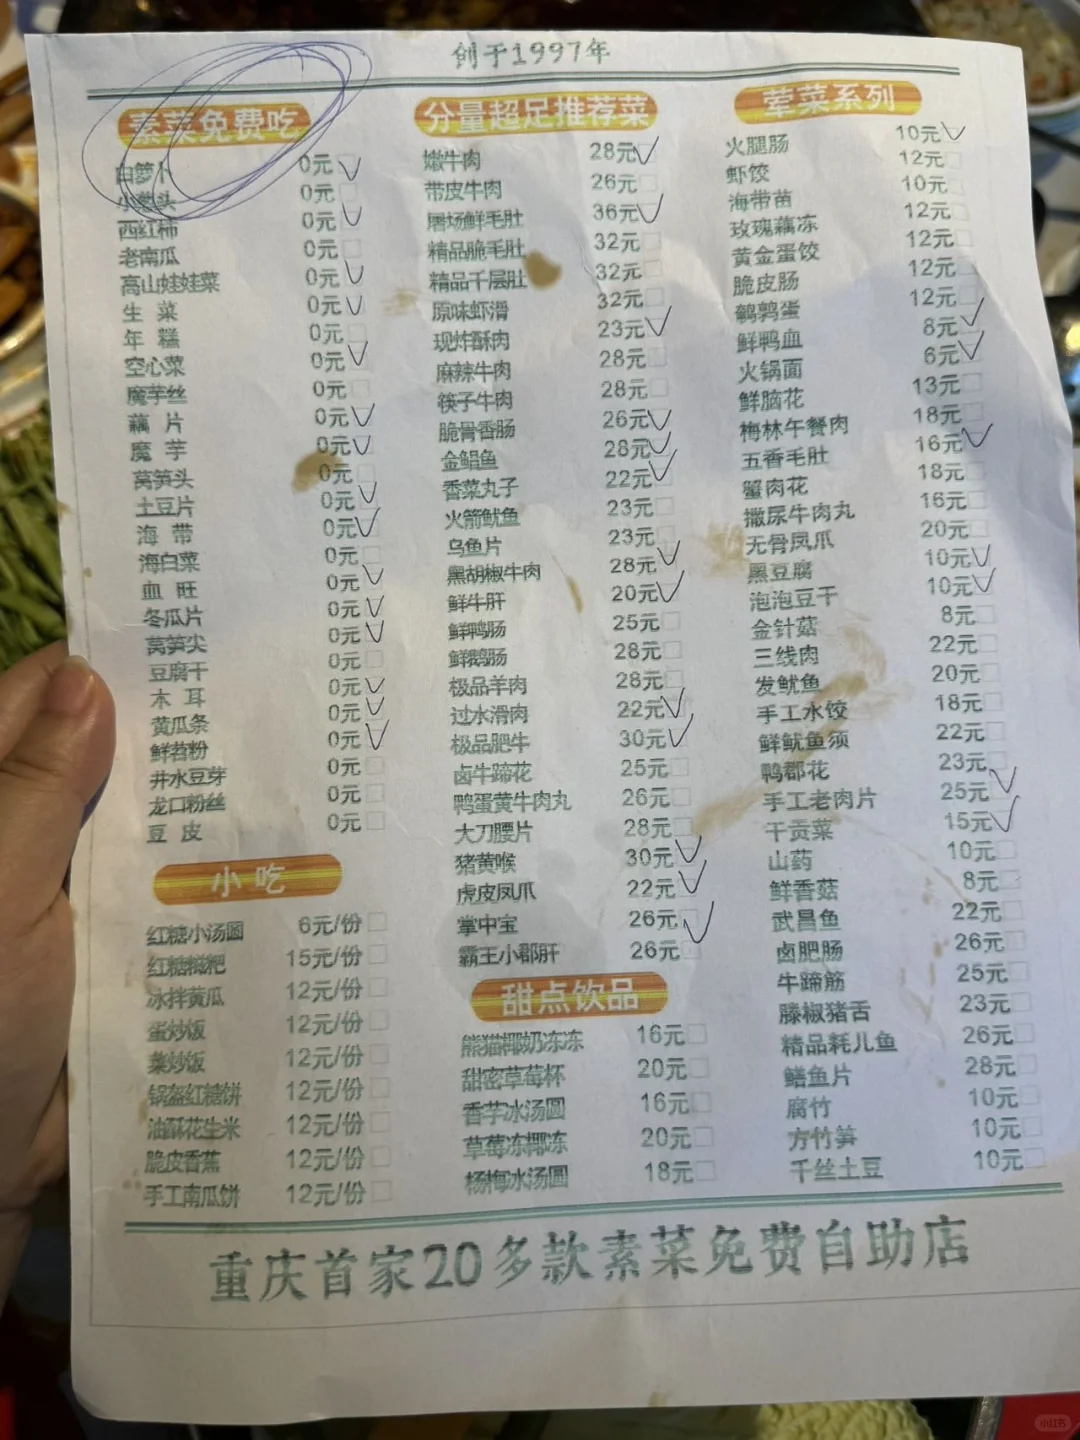 创于1997年
素菜免费吃
白萝卜 0元
小葱头 0元
西红柿 0元
老南瓜 0元
高山娃娃菜 0元
生菜 0元
年糕 0元
空心菜 0元
魔芋丝 0元
藕片 0元
魔芋 0元
莴笋头 0元
土豆片 0元
海带 0元
海白菜 0元
血旺 0元
冬瓜片 0元
莴笋尖 0元
豆腐干 0元
木耳 0元
黄瓜条 0元
鲜苕粉 0元
井水豆芽 0元
龙口粉丝 0元
豆皮 0元
小吃
红糖小汤圆 6元/份
红糖糍粑 15元/份
冰拌黄瓜 12元/份
蛋炒饭 12元/份
菜炒饭 12元/份
锅盔红糖饼 12元/份
油酥花生米 12元/份
脆皮香蕉 12元/份
手工南瓜饼 12元/份
分量超足推荐菜
嫩牛肉 28元
带皮牛肉 26元
屠场鲜毛肚 36元
精品脆毛肚 32元
精品千层肚 32元
原味虾滑 32元
现炸酥肉 23元
麻辣牛肉 28元
筷子牛肉 28元
脆骨香肠 26元
金鲳鱼 28元
香菜丸子 22元
火箭鱿鱼 23元
乌鱼片 23元
黑胡椒牛肉 28元
鲜牛肝 20元
鲜鸭肠 25元
鲜鹅肠 28元
极品羊肉 28元
过水滑肉 22元
极品肥牛 30元
卤牛蹄花 25元
鸭蛋黄牛肉丸 26元
大刀腰片 28元
猪黄喉 30元
虎皮凤爪 22元
掌中宝 26元
霸王小郡肝 26元
甜点饮品
熊猫椰奶冻冻 16元
甜密草莓杯 20元
香芋冰汤圆 16元
草莓冻椰冻 20元
杨梅冰汤圆 18元
荤菜系列
火腿肠 10元
虾饺 12元
海带苗 10元
玫瑰藕冻 12元
黄金蛋饺 12元
脆皮肠 12元
鹌鹑蛋 12元
鲜鸭血 8元
火锅面 6元
鲜脑花 13元
梅林午餐肉 18元
五香毛肚 16元
蟹肉花 18元
撒尿牛肉丸 16元
无骨凤爪 20元
黑豆腐 10元
泡泡豆干 10元
金针菇 8元
三线肉 22元
发鱿鱼 20元
手工水饺 18元
鲜鱿鱼须 22元
鸭郡花 23元
手工老肉片 25元
干贡菜 15元
山药 10元
鲜香菇 8元
武昌鱼 22元
卤肥肠 26元
牛蹄筋 25元
滕椒猪舌 23元
精品耗儿鱼 26元
鳝鱼片 28元
腐竹 10元
方竹笋 10元
千丝土豆 10元
重庆首家20多款素菜免费自助店